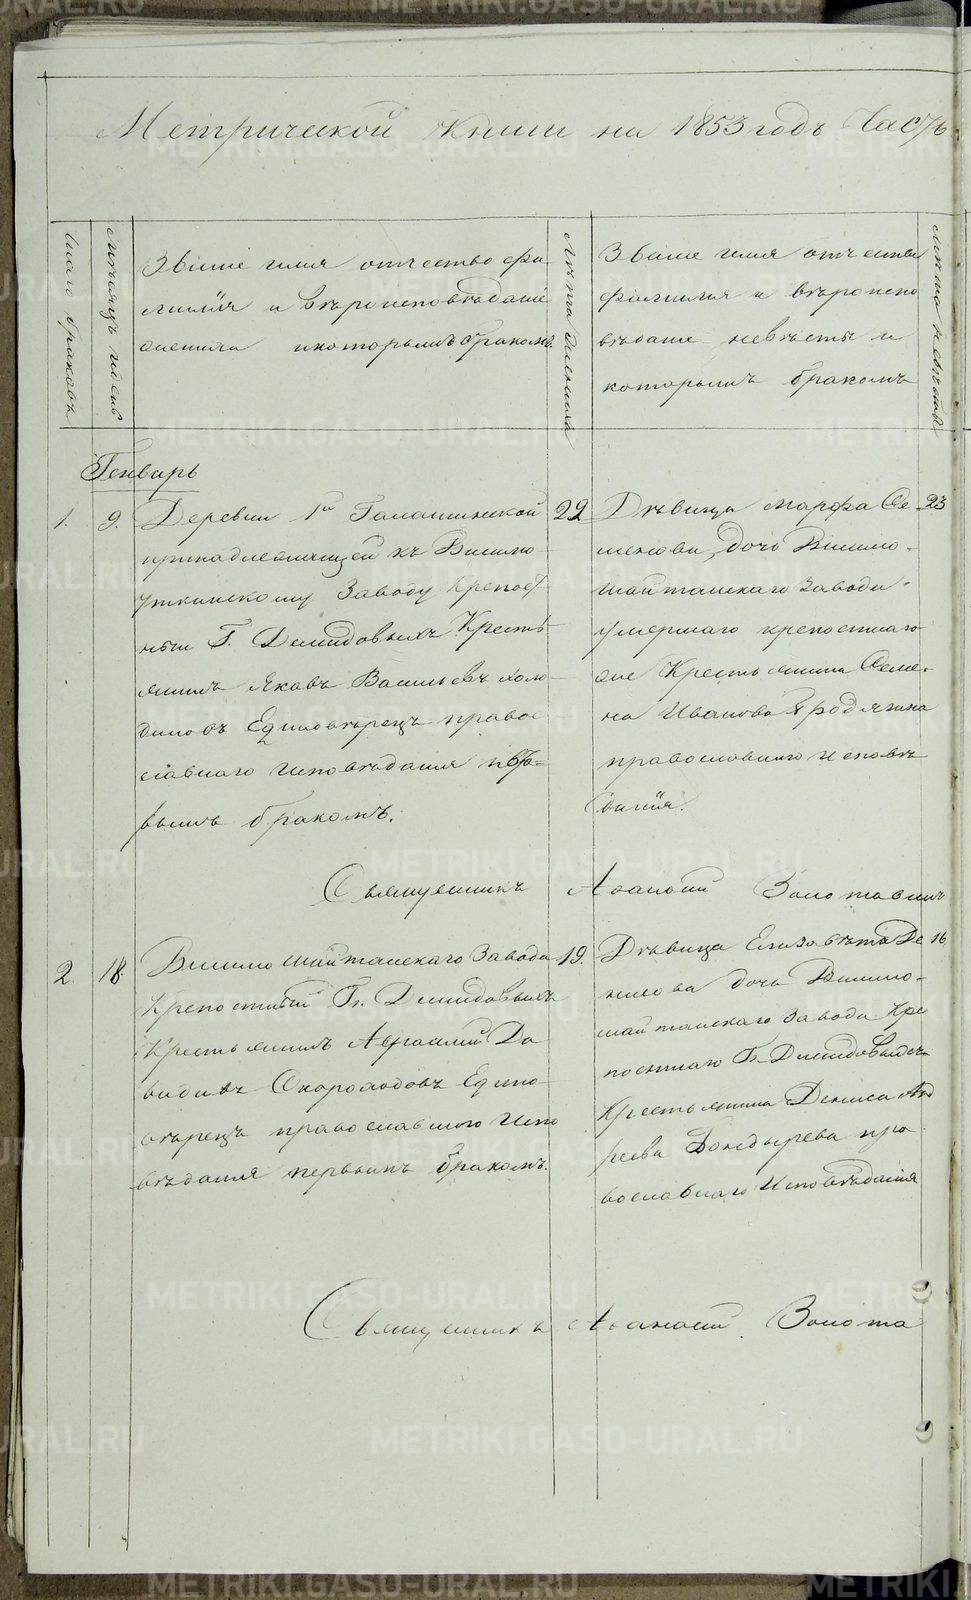 Метрической Книги на 1853 годъ Часть
Число браковъ
Мѣсяцъ и день
Званіе имя отчество фа
милія и вѣроисповѣданіе
жениха и которымъ бракомъ
Лѣта жениха
Званіе имя отчество
фамилія и вѣроиспо
вѣданіе невѣсты и
которымъ бракомъ
Лѣта невѣсты
Генварь
1.
9.
Деревни Галашинской
принадлежащей къ Висимо
уткинскому Заводу крепост
ный Г. Демидовыхъ Кресть
янинъ Яковъ Васильевъ Холо
диловъ Единовѣрецъ право
славнаго исповѣданія пер
вымъ бракомъ.
22
Дѣвица Марфа Се
менова, дочь Висимо
шайтанскаго Завода
умершаго крепостнаго
Крестьянина Семе
на Иванова
православнаго исповѣ
данія.
23
Священникъ Афанасій Золотавинъ
2.
18.
Висимошайтанскаго Завода
Крепостный Гг. Демидовыхъ
Крестьянинъ Да
видовъ Скороходовъ Едино
вѣрецъ православнаго Испо
вѣданія первымъ бракомъ.
19.
Дѣвица Елизавета Де
нисова дочь Висимо
шайтанскаго Завода Кре
постнаго Гг. Демидовыхъ
Крестьянина Дениса Анд
реева Бондырева пра
вославнаго Исповѣданія
16
Священникъ Афанасій Золота
METRIKI.GASO-URAL.RU